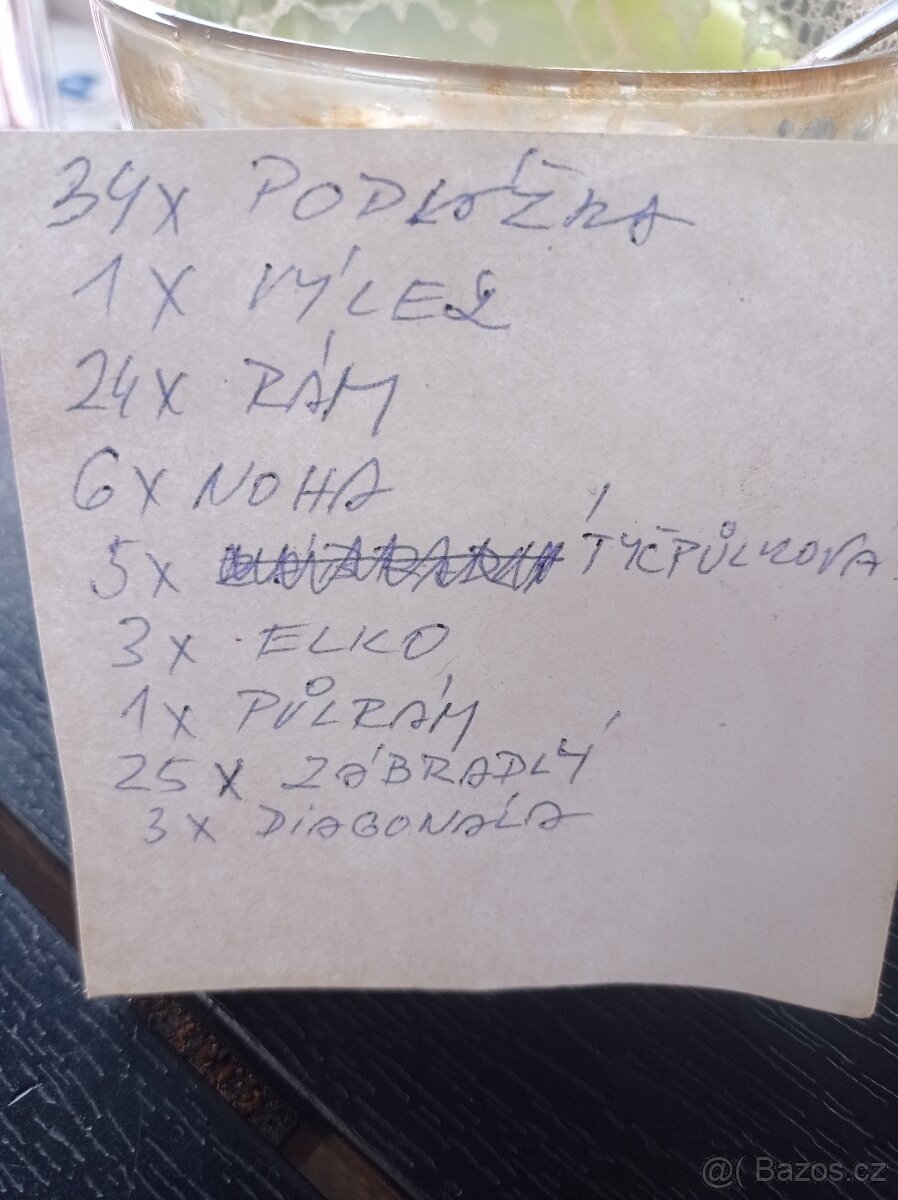 34x PODLÁŽKA
1X VÝLEZ
24X RÁM
6X NOHA
5X TYČPŮLKOVA
3X ELKO
1X PŮLRÁM
25X ZÁBRADLÝ
3X DIAGONÁLA
@( Bazos.cz